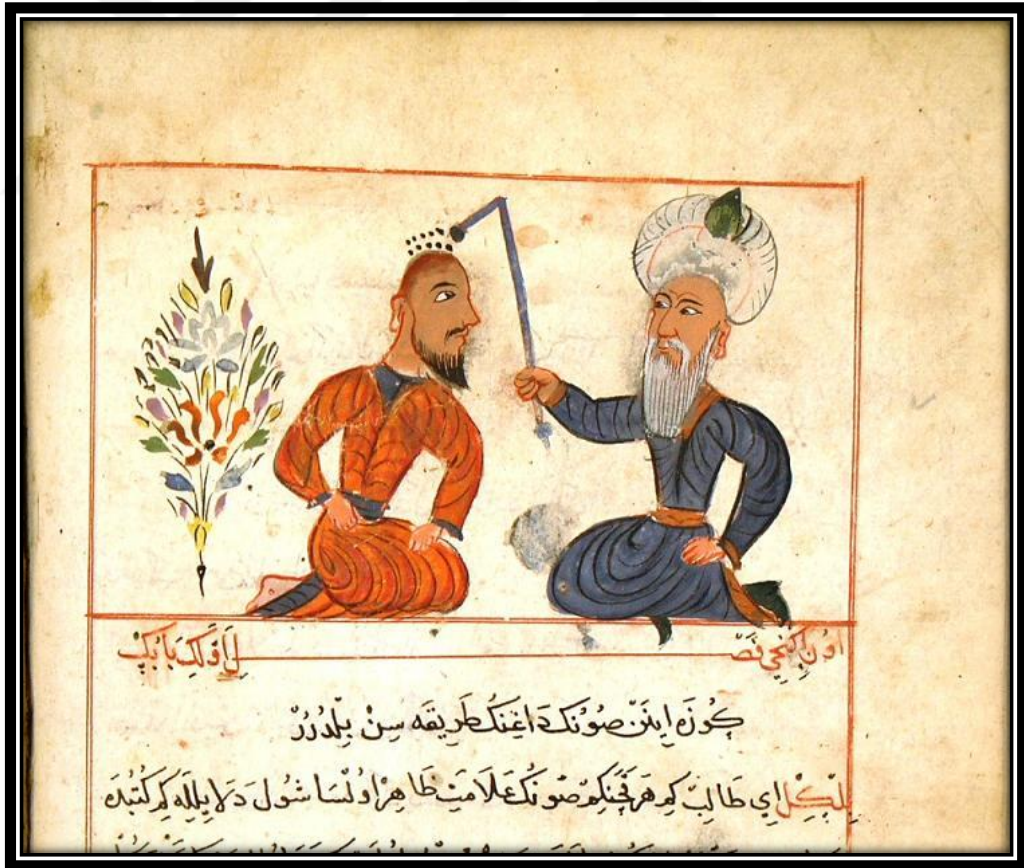 اون اكنجي فصل اولكى بابك
كوزه اينن صونك داغنك طريقه سن بلدرر
بلكل اي طالب كم هر قچنكم صونك علامتى ظاهر اولسا شول دلايلله كم كتبده